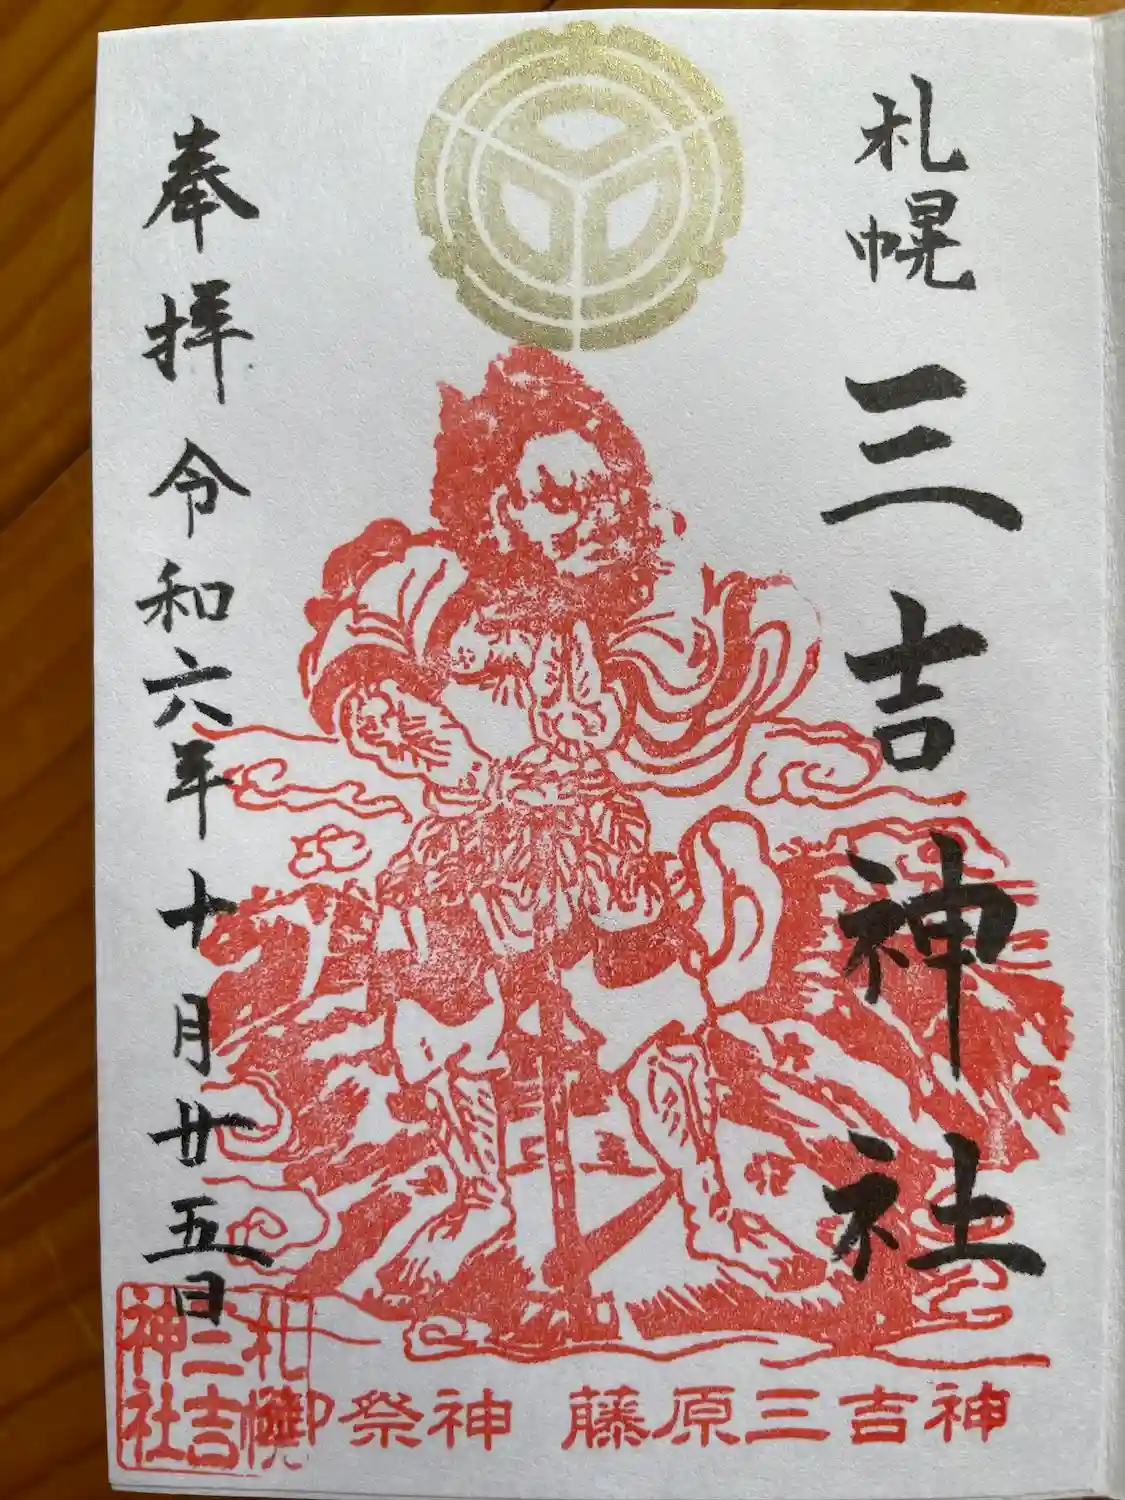 札幌三吉神社
奉拝令和六年十月廿五日
御祭神 藤原三吉神
札幌
三吉
神社